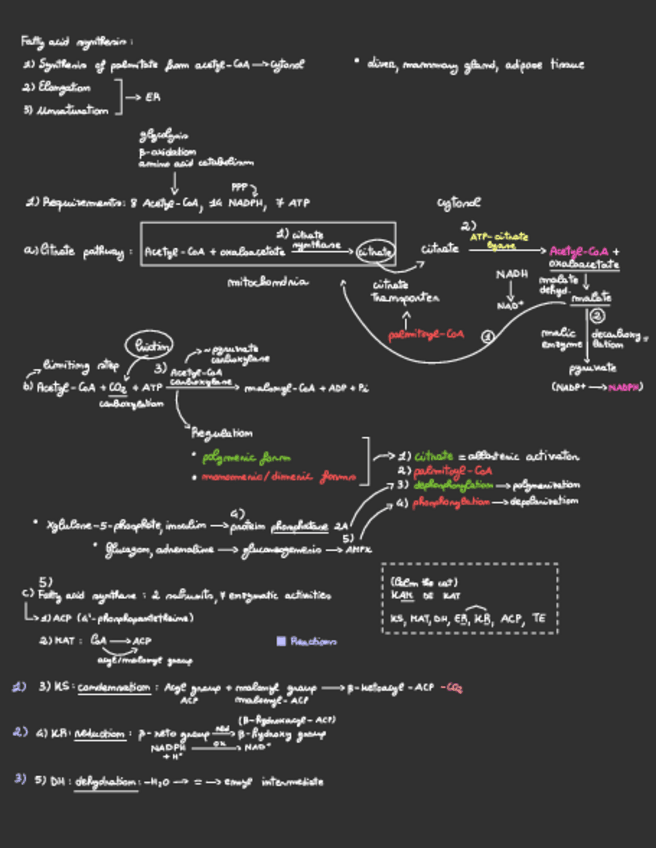 Fatty acid synthesis:
1) Synthesis of palmitate from acetyl-CoA → cytosol
• liver, mammary gland, adipose tissue
2) Elongation
3) Unsaturation
→ ER
glycolysis
β-oxidation
amino acid catabolism
PPP
1) Requirements: 8 Acetyl-CoA, 14 NADPH, 7 ATP
cytosol
a) Citrate pathway:
Acetyl-CoA + oxaloacetate
1) citrate synthase
→ citrate
mitochondria
citrate transporter
palmitoyl-CoA
citrate
2)
ATP-citrate lyase
Acetyl-CoA +
oxaloacetate
NADH
NAD+
malate dehyd.
malate
①
②
malic enzyme
decarboxylation
pyruvate
(NADP+ → NADPH)
biotin
limiting step
~ pyruvate carboxylase
3) Acetyl-CoA carboxylase
b) Acetyl-CoA + CO₂ + ATP → malonyl-CoA + ADP + Pi
carboxylation
Regulation
• polymeric form
• monomeric/dimeric forms
→ 1) citrate = allosteric activator
2) palmitoyl-CoA
3) dephosphorylation → polymerization
4) phosphorylation →
4)
• Xylulose-5-phosphate, insulin → protein phosphatase 2A
5)
• Glucagon, adrenaline → → AMPK
5)
c) Fatty acid synthase: 2 subunits, 7 enzymatic activities
1) ACP (4'-phosphopantetheine)
2) MAT: CoA → ACP
acyl/malonyl group
Reactions
(Calm the cat)
KAM DE KAT
KS, MAT, DH, ER, KR, ACP, TE
1) 3) KS: condensation: Acyl group + malonyl group → β-ketoacyl-ACP -CO₂
ACP malonyl-ACP
(β-hydroxyacyl-ACP)
2) 4) KR: reduction: β-keto group red → β-hydroxy group
NADPH + H+ ox → NAD+
3) 5) DH: dehydration: -H₂O → = → enoyl intermediate